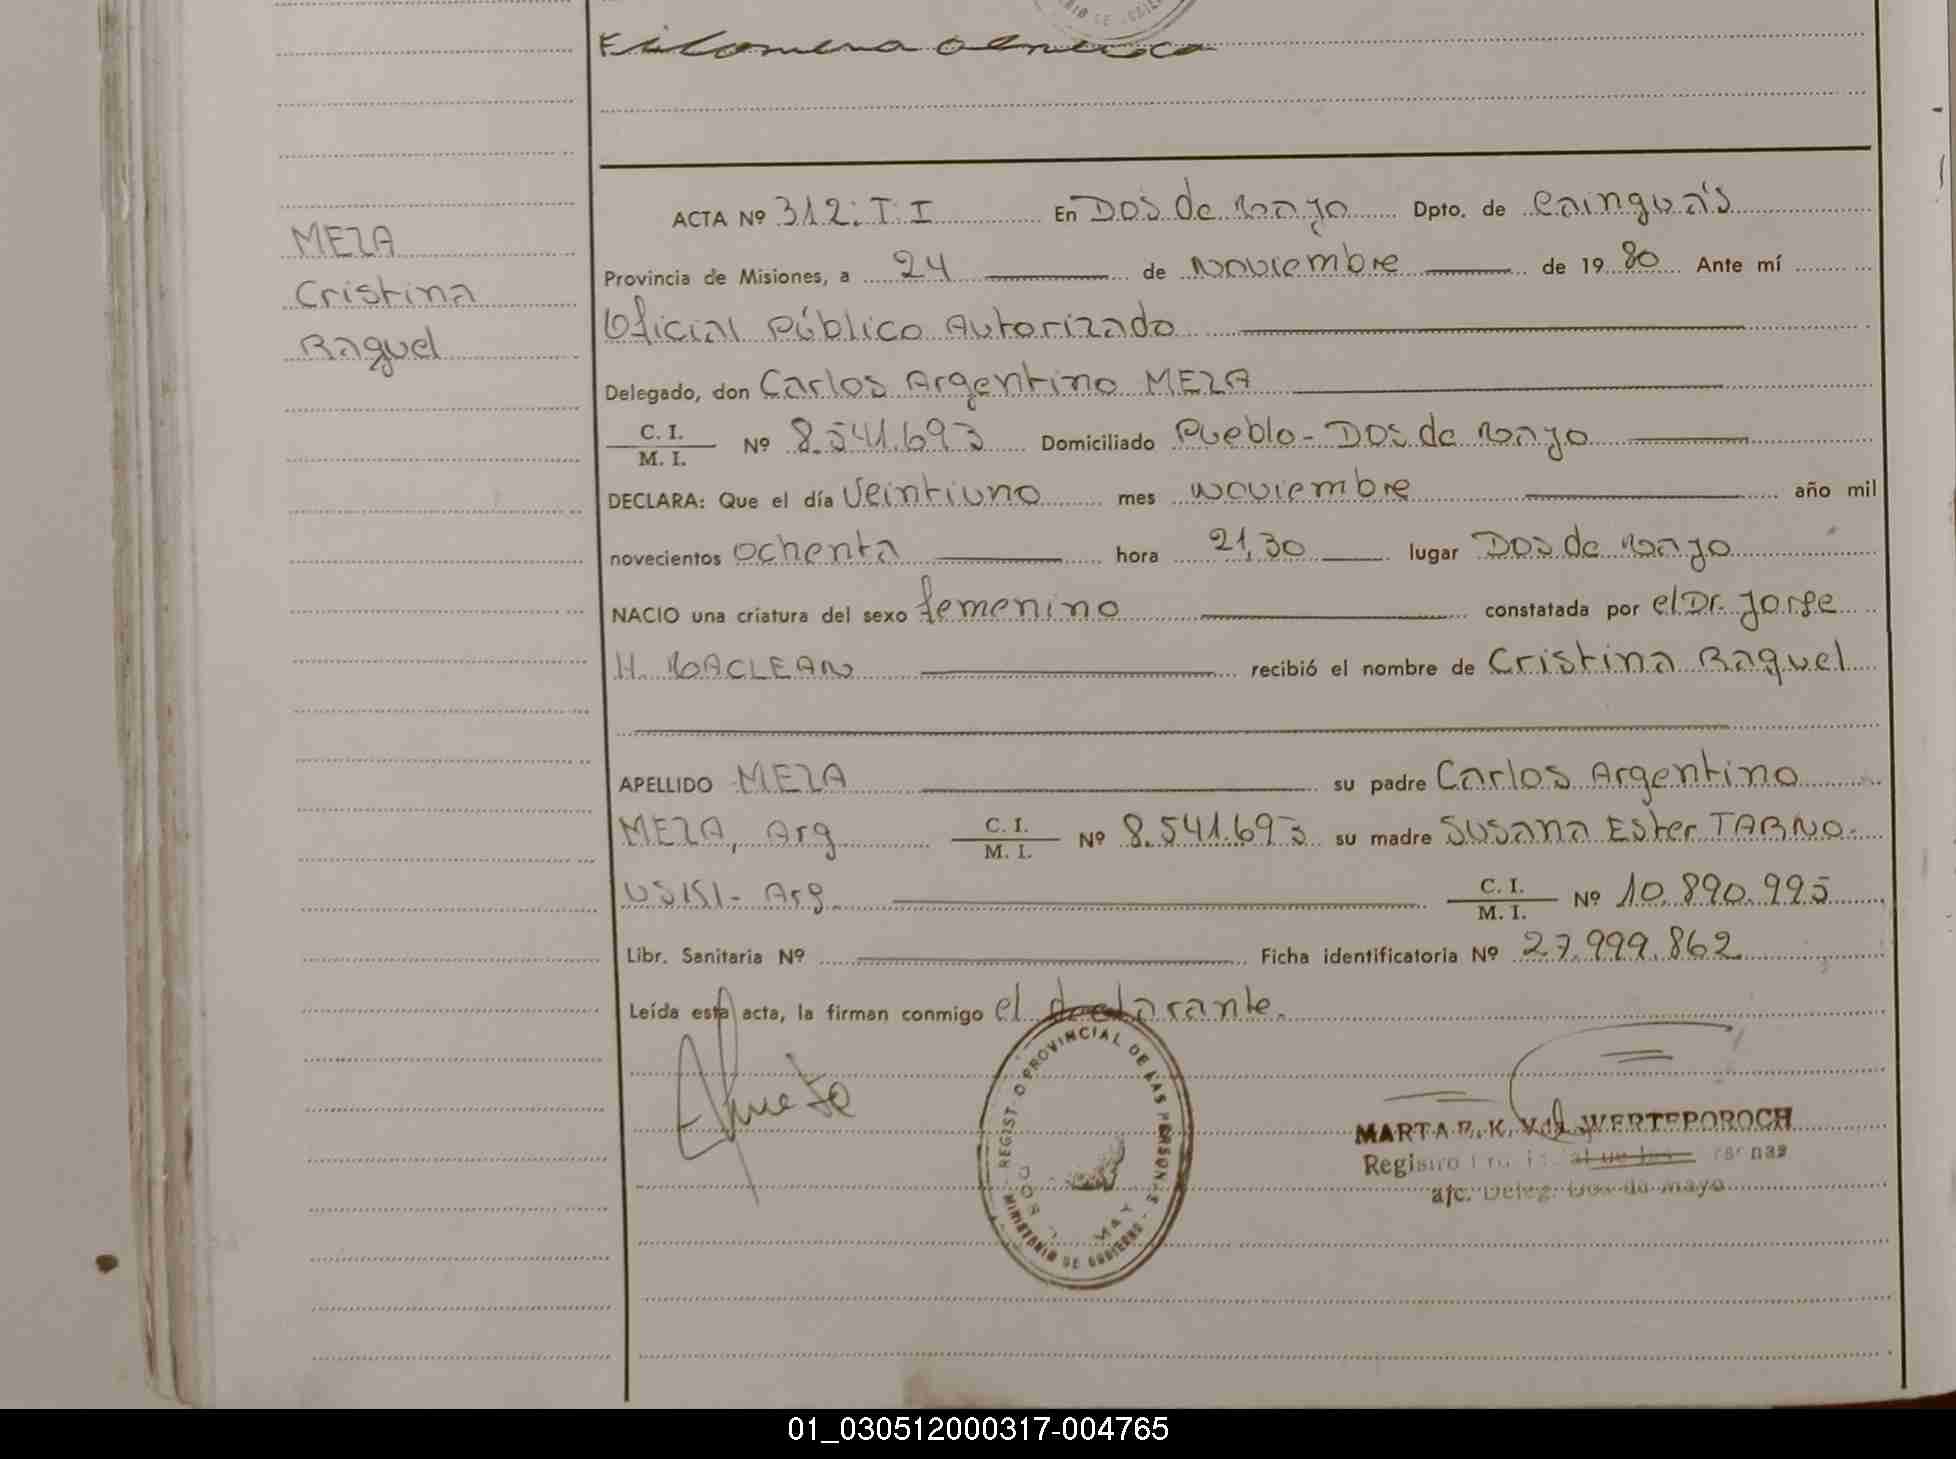 Filomena
MEZA
Cristina
Raquel
ACTA Nº 312: T: I En Dos de Mayo Dpto. de Cainguás
Provincia de Misiones, a 24 de Noviembre de 1980 Ante mí
Oficial Público Autorizado
Delegado, don Carlos Argentino MEZA
C. I.
M. I. Nº 8.541.693 Domiciliado Pueblo - Dos de Mayo
DECLARA: Que el día Veintiuno mes Noviembre año mil
novecientos ochenta hora 21,30 lugar Dos de Mayo
NACIO una criatura del sexo femenino constatada por el Dr. Jorge
H. MACLEAN recibió el nombre de Cristina Raquel
APELLIDO MEZA su padre Carlos Argentino
MEZA, Arg C. I.
M. I. Nº 8.541.693 su madre Susana Ester TARNO-
USKI - Arg. C. I.
M. I. Nº 10.890.995
Libr. Sanitaria Nº Ficha identificatoria Nº 27.999.862
Leída esta acta, la firman conmigo el declarante.
REGISTRO PROVINCIAL DE LAS PERSONAS
MINISTERIO DE GOBIERNO
MARTA E. K. Vda. WERTEPOROCH
Registro
a/c. Deleg. Dos de Mayo
01_030512000317-004765